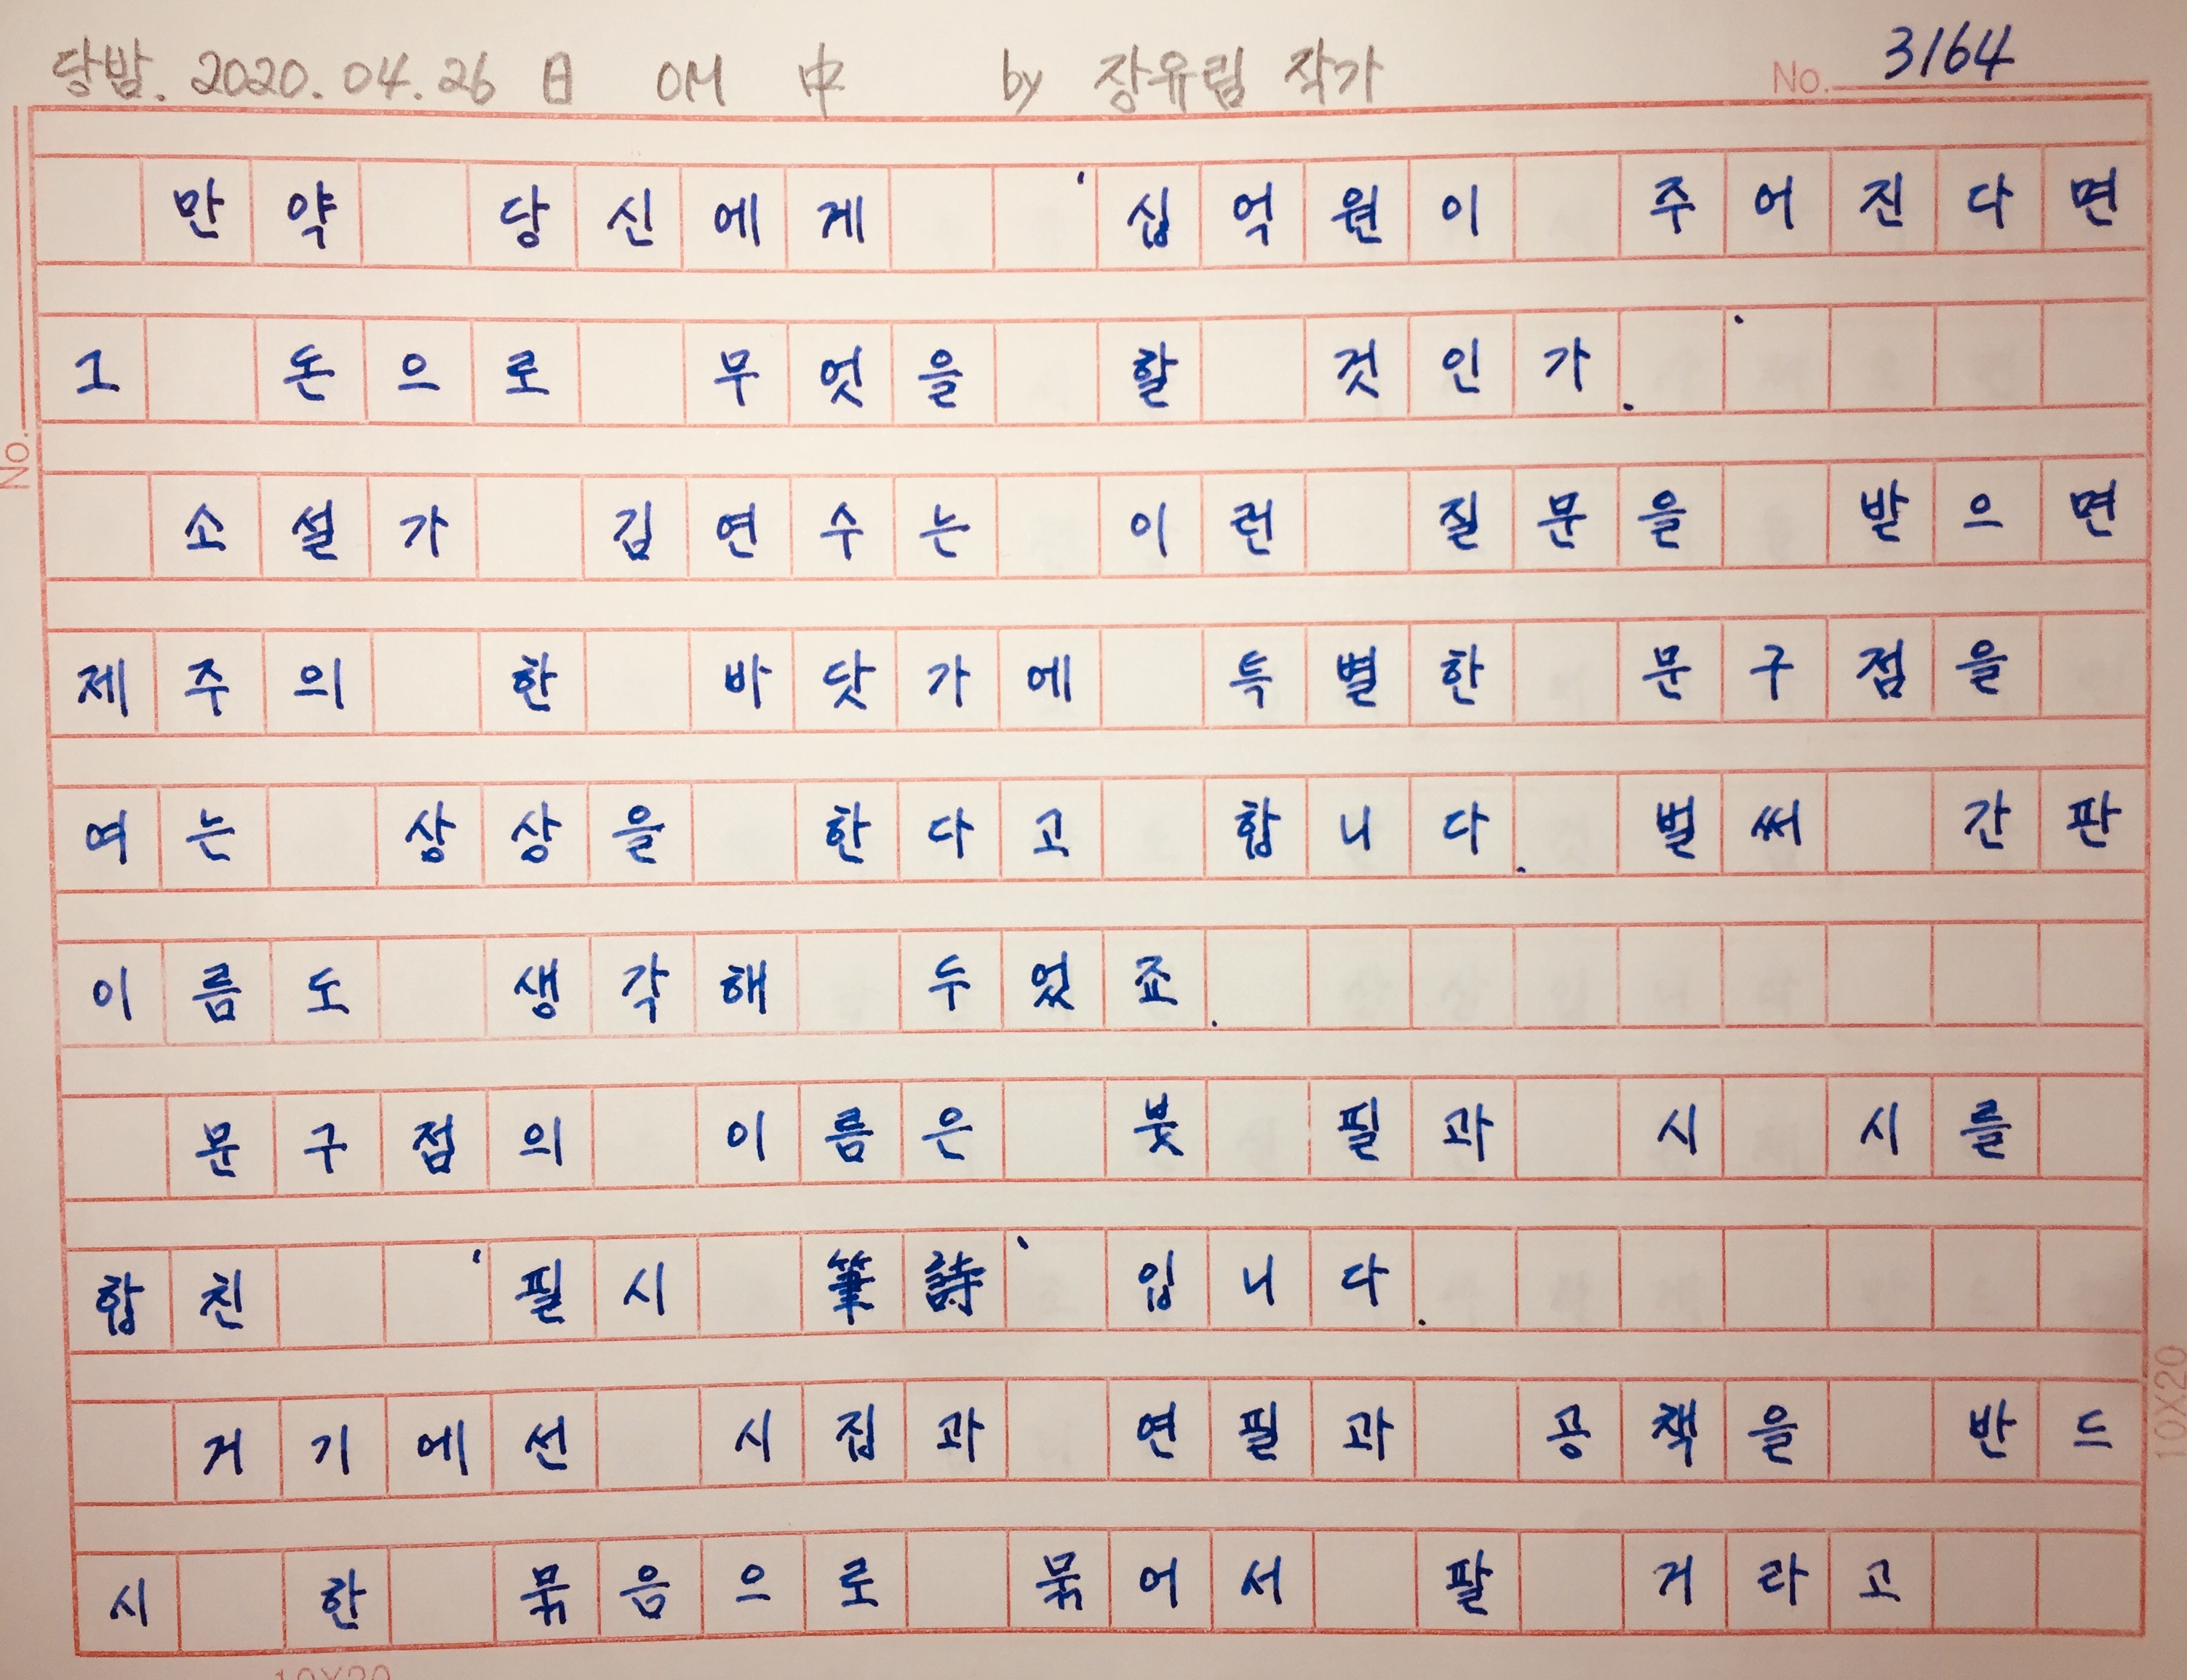 당밤. 2020. 04. 26 日 OM 中 by 장유림 작가 No. 3164
만약 당신에게 '십억원이 주어진다면
그 돈으로 무엇을 할 것인가.'
소설가 김연수는 이런 질문을 받으면
No.
제주의 한 바닷가에 특별한 문구점을
여는 상상을 한다고 합니다. 벌써 간판
이름도 생각해 두었죠.
문구점의 이름은 붓 필과 시 시를
합친 '필시 筆詩' 입니다.
거기에선 시집과 연필과 공책을 반드
10X20
시 한 묶음으로 묶어서 팔 거라고
10X20